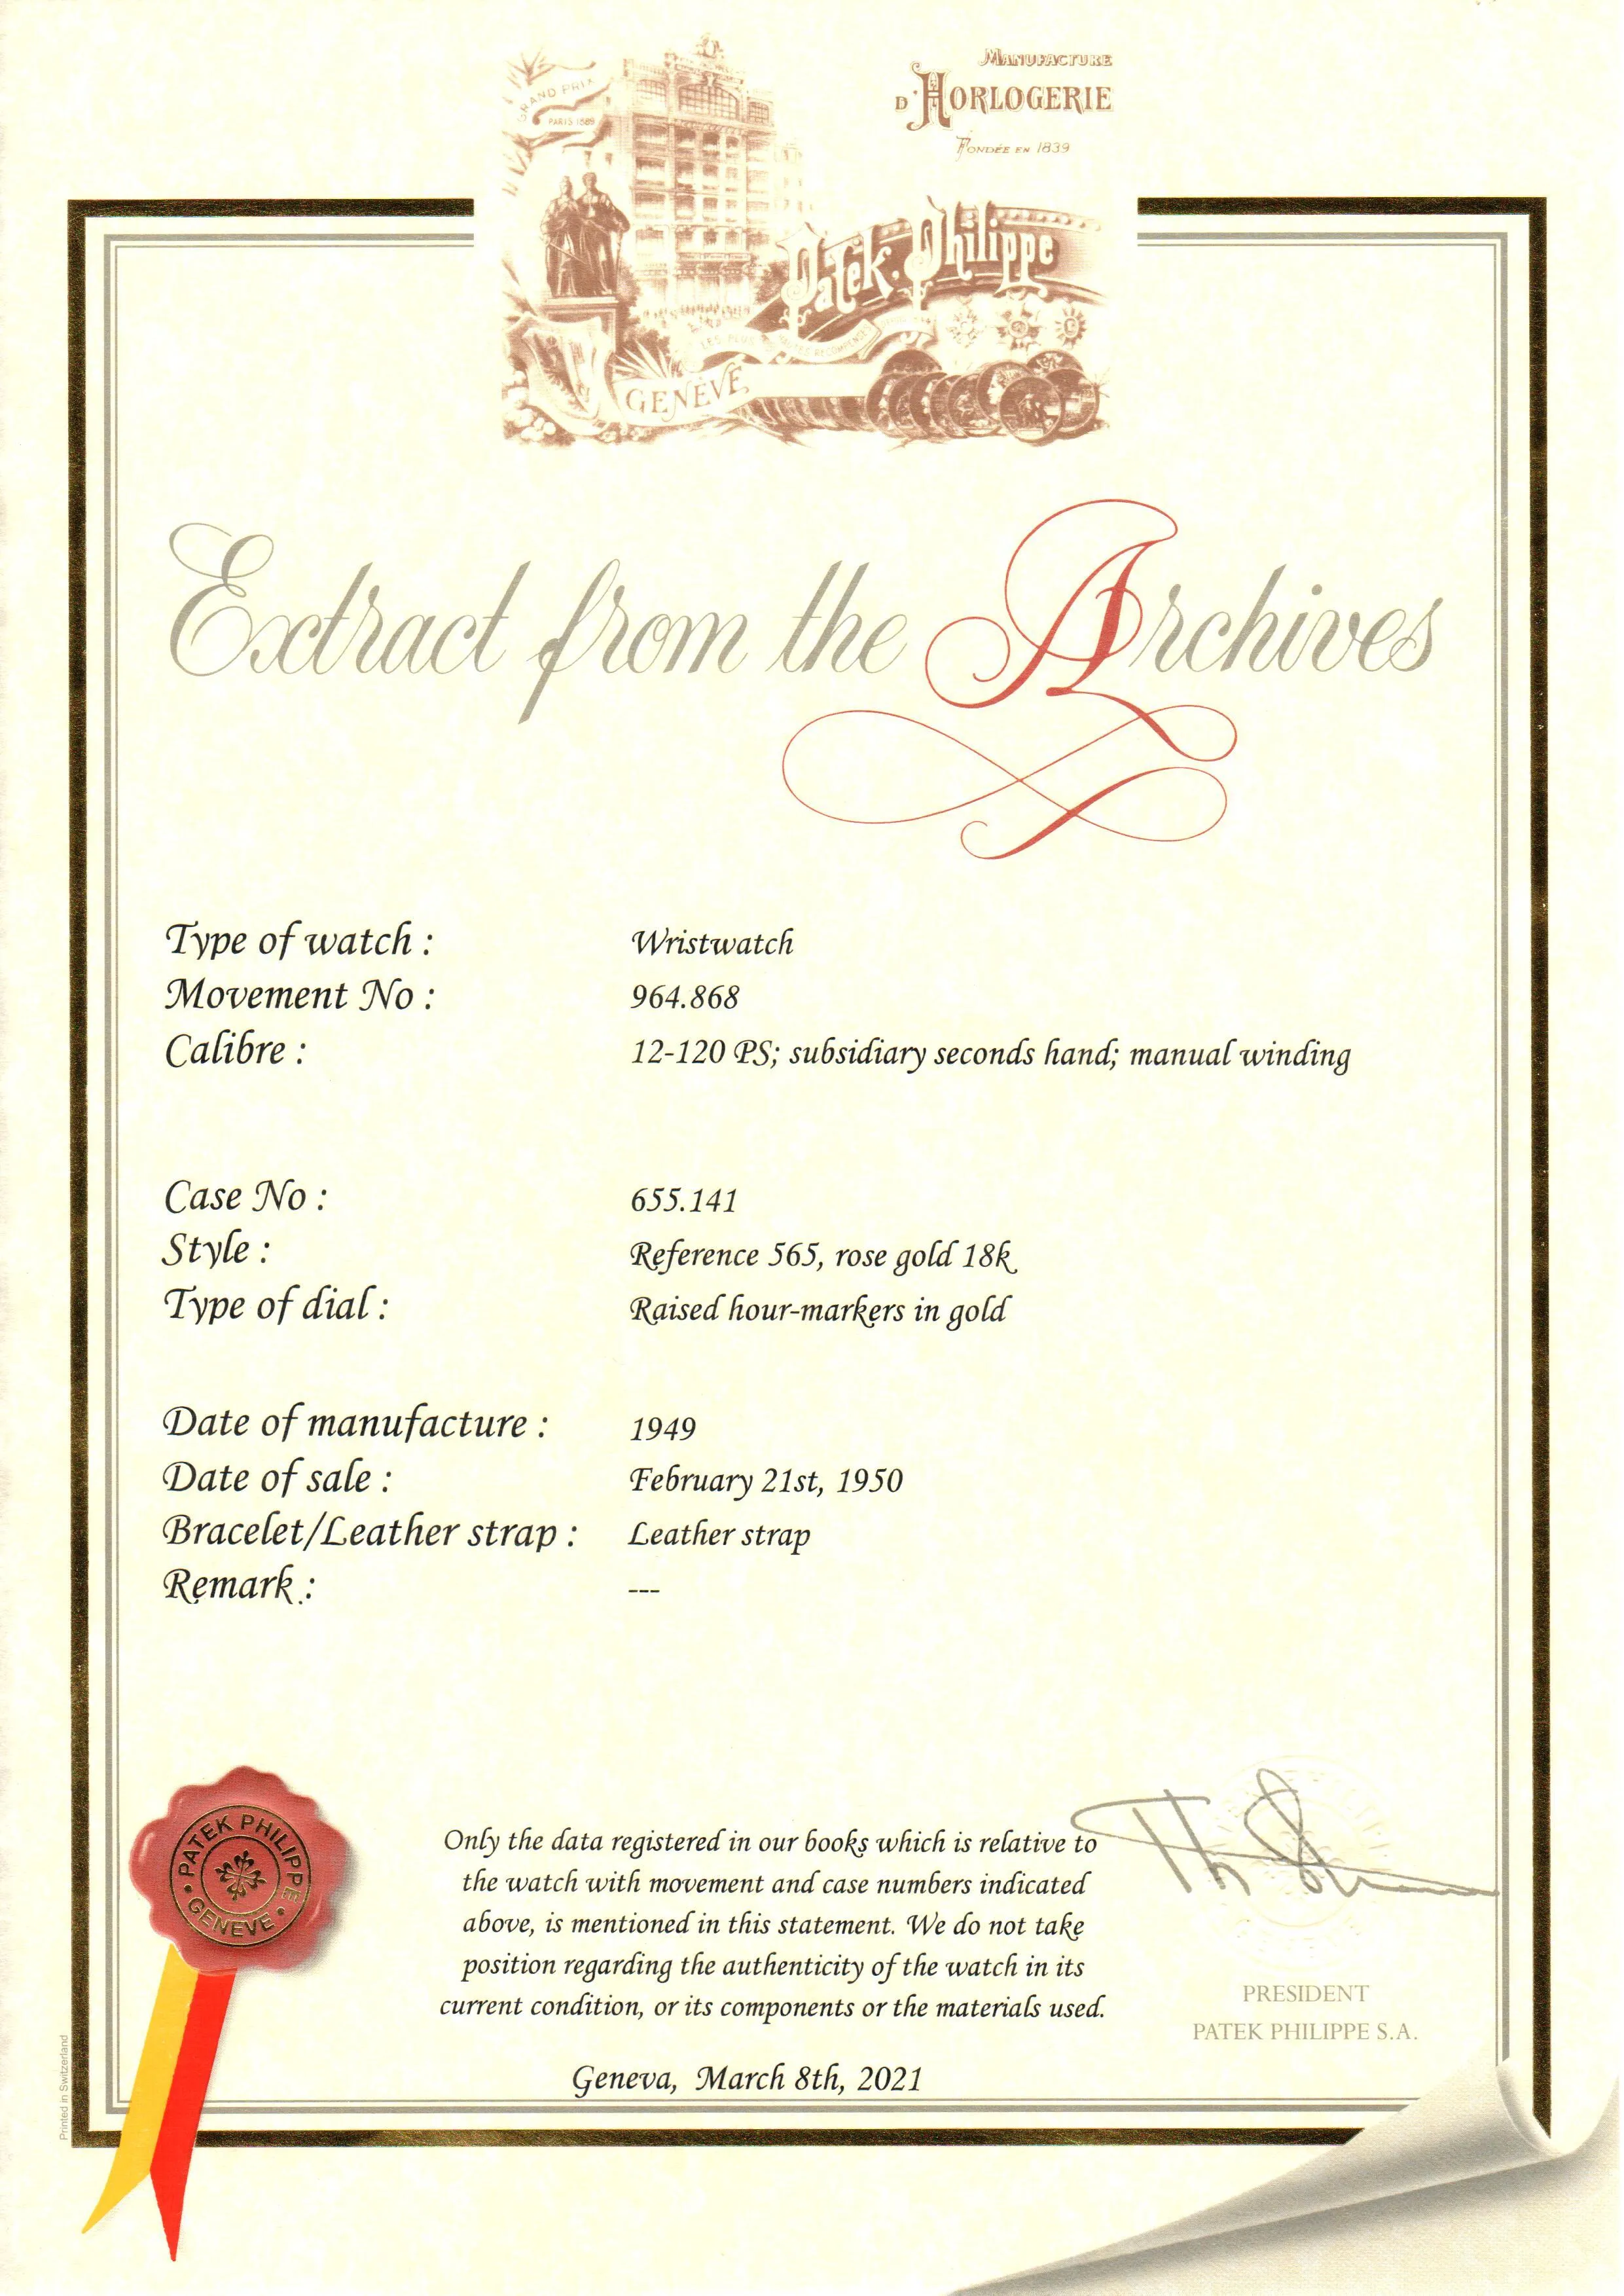 GRAND PRIX
PARIS 1889
MANUFACTURE
D'HORLOGERIE
FONDÉE EN 1839
Patek. Philippe
LES PLUS HAUTES RECOMPENSES
GENÈVE
Extract from the Archives
Type of watch : Wristwatch
Movement No : 964.868
Calibre : 12-120 PS; subsidiary seconds hand; manual winding
Case No : 655.141
Style : Reference 565, rose gold 18k
Type of dial : Raised hour-markers in gold
Date of manufacture : 1949
Date of sale : February 21st, 1950
Bracelet/Leather strap : Leather strap
Remark : ---
PATEK PHILIPPE
GENEVE
Only the data registered in our books which is relative to
the watch with movement and case numbers indicated
above, is mentioned in this statement. We do not take
position regarding the authenticity of the watch in its
current condition, or its components or the materials used.
PRESIDENT
PATEK PHILIPPE S.A.
Geneva, March 8th, 2021
Printed in Switzerland